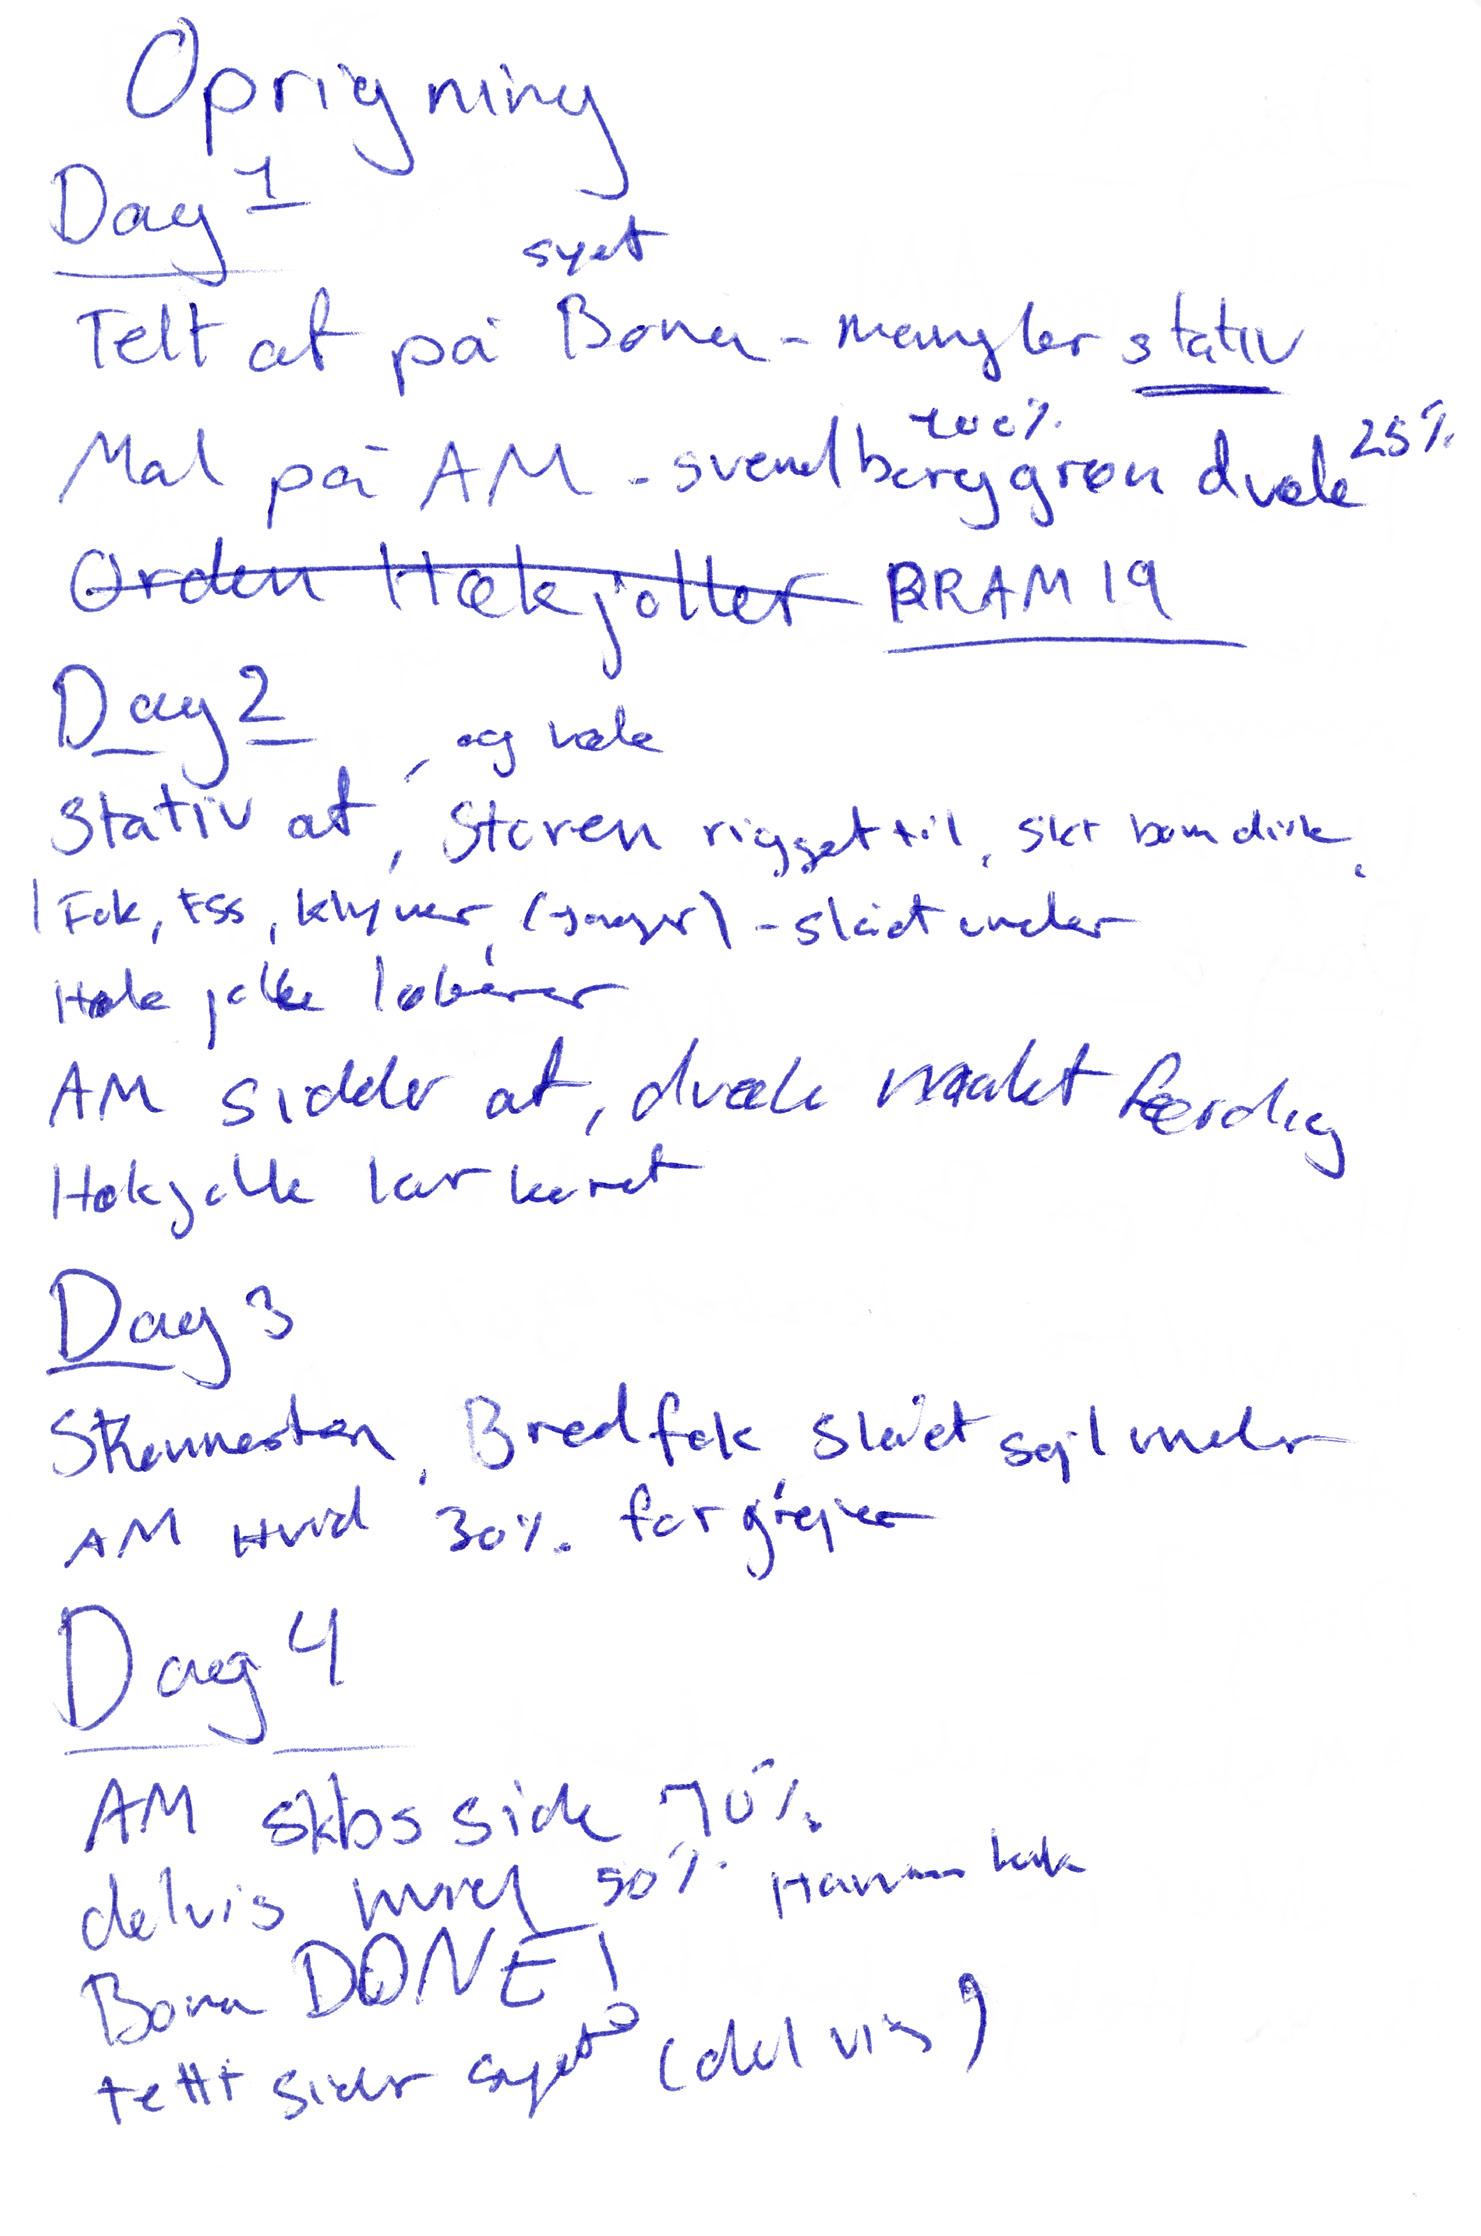 Oprigning
Dag 1
syet
Telt af på Bona - mangler stativ
100% 25%
Mal på AM - svendborggrøn dvale
Orden Hækjoller BRAM19
Dag 2
og væk
Stativ af, Storen rigget til, skt bom dirk,
Fok, FSS, klyver, (jager) - slået under
Hæk jolle
AM sidder af, dvale malet færdig
Hækjolle
Dag 3
Skonnerten, Bredfok slået sejl under
AM Hvid 30%.
Dag 4
AM skbs side 70%
delvis hvid 50%.
Bona DONE!
telt sider syet (delvis)